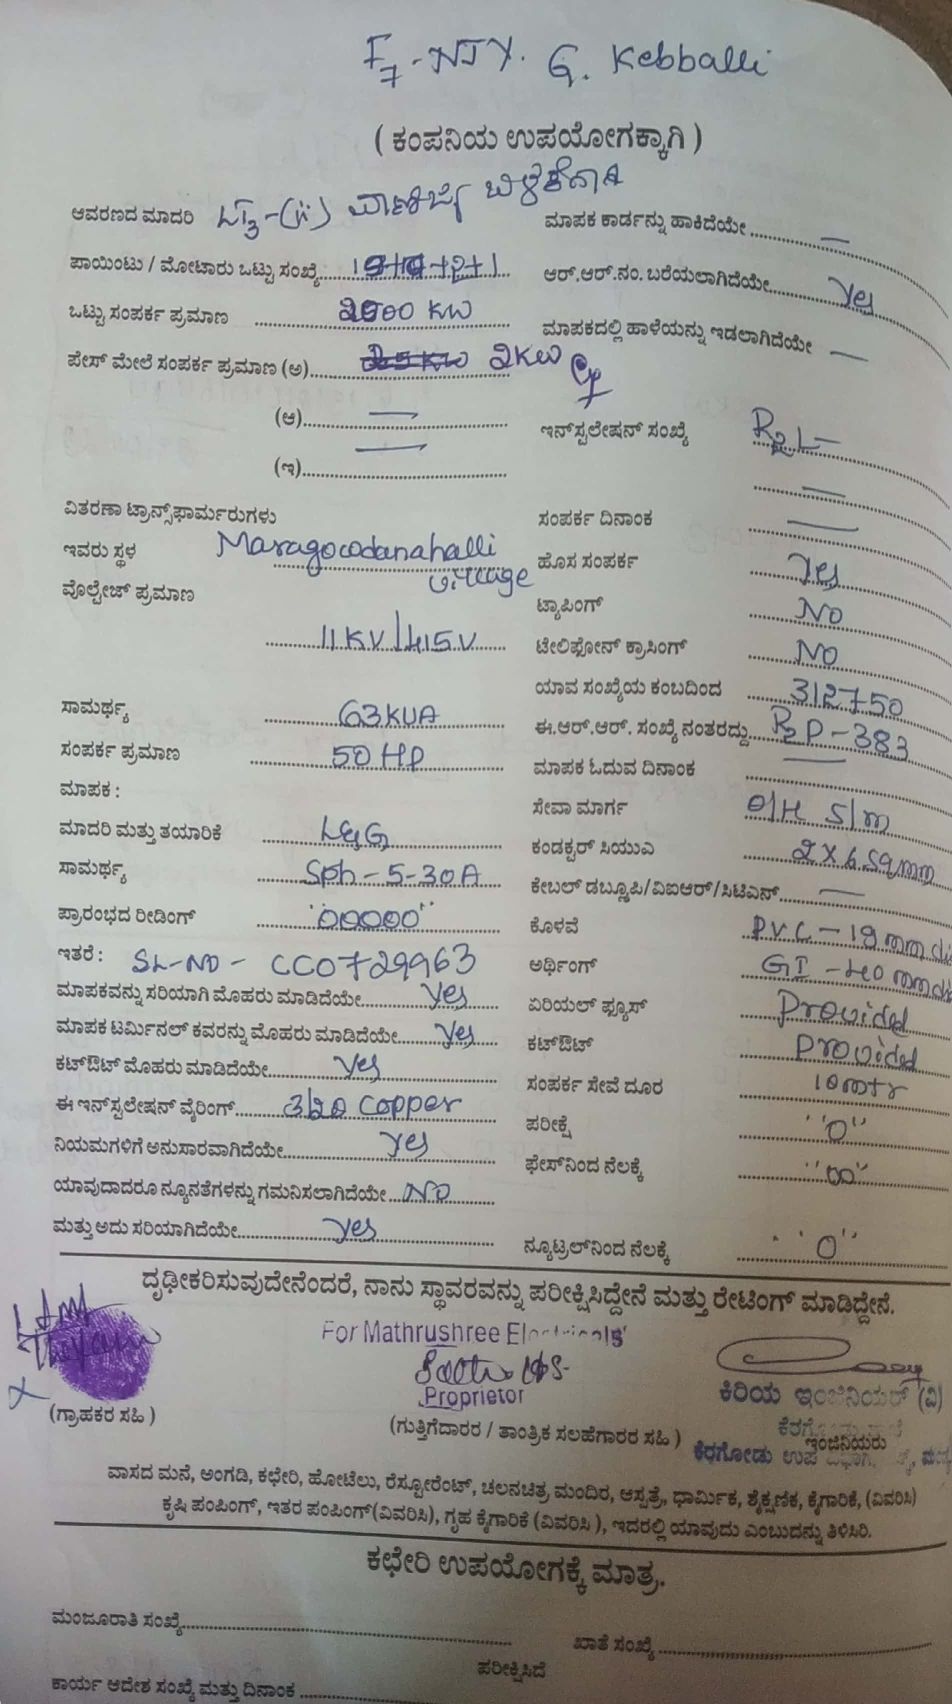 F7-NJY. G. Kebballi
( ಕಂಪನಿಯ ಉಪಯೋಗಕ್ಕಾಗಿ )
ಆವರಣದ ಮಾದರಿ LT3-(ii) ವಾಣಿಜ್ಯ
ಪಾಯಿಂಟು / ಮೋಟಾರು ಒಟ್ಟು ಸಂಖ್ಯೆ
ಒಟ್ಟು ಸಂಪರ್ಕ ಪ್ರಮಾಣ KW
ಪೇಸ್ ಮೇಲೆ ಸಂಪರ್ಕ ಪ್ರಮಾಣ (ಅ) 2KW
(ಆ) —
(ಇ) —
ವಿತರಣಾ ಟ್ರಾನ್ಸ್‌ಫಾರ್ಮರುಗಳು
ಇವರು ಸ್ಥಳ Maragowdanahalli village
ವೊಲ್ಟೇಜ್ ಪ್ರಮಾಣ
11KV/415V
ಸಾಮರ್ಥ್ಯ 63KVA
ಸಂಪರ್ಕ ಪ್ರಮಾಣ 50HP
ಮಾಪಕ :
ಮಾದರಿ ಮತ್ತು ತಯಾರಿಕೆ L&G
ಸಾಮರ್ಥ್ಯ Sph-5-30A
ಪ್ರಾರಂಭದ ರೀಡಿಂಗ್ "00000"
ಇತರೆ : SL-NO - CC0729963
ಮಾಪಕವನ್ನು ಸರಿಯಾಗಿ ಮೊಹರು ಮಾಡಿದೆಯೇ yes
ಮಾಪಕ ಟರ್ಮಿನಲ್ ಕವರನ್ನು ಮೊಹರು ಮಾಡಿದೆಯೇ yes
ಕಟ್‌ಔಟ್ ಮೊಹರು ಮಾಡಿದೆಯೇ yes
ಈ ಇನ್‌ಸ್ಪಲೇಷನ್ ವೈರಿಂಗ್ 3/20 copper
ನಿಯಮಗಳಿಗೆ ಅನುಸಾರವಾಗಿದೆಯೇ yes
ಯಾವುದಾದರೂ ನ್ಯೂನತೆಗಳನ್ನು ಗಮನಿಸಲಾಗಿದೆಯೇ NO
ಮತ್ತು ಅದು ಸರಿಯಾಗಿದೆಯೇ yes
ಮಾಪಕ ಕಾರ್ಡನ್ನು ಹಾಕಿದೆಯೇ —
ಆರ್.ಆರ್.ನಂ. ಬರೆಯಲಾಗಿದೆಯೇ yes
ಮಾಪಕದಲ್ಲಿ ಹಾಳೆಯನ್ನು ಇಡಲಾಗಿದೆಯೇ —
ಇನ್‌ಸ್ಪಲೇಷನ್ ಸಂಖ್ಯೆ R2L—
—
ಸಂಪರ್ಕ ದಿನಾಂಕ —
ಹೊಸ ಸಂಪರ್ಕ yes
ಟ್ಯಾಪಿಂಗ್ NO
ಟೇಲಿಫೋನ್ ಕ್ರಾಸಿಂಗ್ NO
ಯಾವ ಸಂಖ್ಯೆಯ ಕಂಬದಿಂದ 312750
ಈ.ಆರ್.ಆರ್. ಸಂಖ್ಯೆ ನಂತರದ್ದು R2P-383
ಮಾಪಕ ಓದುವ ದಿನಾಂಕ —
ಸೇವಾ ಮಾರ್ಗ O/H S/m
ಕಂಡಕ್ಟರ್ ಸಿಯುಎ 2X6 sqmm
ಕೇಬಲ್ ಡಬ್ಲೂಪಿ/ವಿಐಆರ್/ಸಿಟಿಎನ್ —
ಕೊಳವೆ P.V.C - 19mm
ಅರ್ಥಿಂಗ್ GI - 40mm
ಏರಿಯಲ್ ಫ್ಯೂಸ್ Provided
ಕಟ್‌ಔಟ್ Provided
ಸಂಪರ್ಕ ಸೇವೆ ದೂರ 10mtr
ಪರೀಕ್ಷೆ "0"
ಫೇಸ್‌ನಿಂದ ನೆಲಕ್ಕೆ "00"
ನ್ಯೂಟ್ರಲ್‌ನಿಂದ ನೆಲಕ್ಕೆ "0"
ದೃಢೀಕರಿಸುವುದೇನೆಂದರೆ, ನಾನು ಸ್ಥಾವರವನ್ನು ಪರೀಕ್ಷಿಸಿದ್ದೇನೆ ಮತ್ತು ರೇಟಿಂಗ್ ಮಾಡಿದ್ದೇನೆ.
For Mathrushree Electricals
Proprietor
ಕಿರಿಯ ಇಂಜಿನಿಯರ್ (ವಿ)
(ಗ್ರಾಹಕರ ಸಹಿ )
(ಗುತ್ತಿಗೆದಾರರ / ತಾಂತ್ರಿಕ ಸಲಹೆಗಾರರ ಸಹಿ )
ಇಂಜಿನಿಯರು
ಕೆರಗೋಡು ಉಪ
ವಾಸದ ಮನೆ, ಅಂಗಡಿ, ಕಛೇರಿ, ಹೋಟೆಲು, ರೆಸ್ಟೋರೆಂಟ್, ಚಲನಚಿತ್ರ ಮಂದಿರ, ಆಸ್ಪತ್ರೆ, ಧಾರ್ಮಿಕ, ಶೈಕ್ಷಣಿಕ, ಕೈಗಾರಿಕೆ, (ವಿವರಿಸಿ)
ಕೃಷಿ ಪಂಪಿಂಗ್, ಇತರ ಪಂಪಿಂಗ್(ವಿವರಿಸಿ), ಗೃಹ ಕೈಗಾರಿಕೆ (ವಿವರಿಸಿ ), ಇದರಲ್ಲಿ ಯಾವುದು ಎಂಬುದನ್ನು ತಿಳಿಸಿರಿ.
ಕಛೇರಿ ಉಪಯೋಗಕ್ಕೆ ಮಾತ್ರ.
ಮಂಜೂರಾತಿ ಸಂಖ್ಯೆ
ಖಾತೆ ಸಂಖ್ಯೆ
ಪರೀಕ್ಷಿಸಿದೆ
ಕಾರ್ಯ ಆದೇಶ ಸಂಖ್ಯೆ ಮತ್ತು ದಿನಾಂಕ